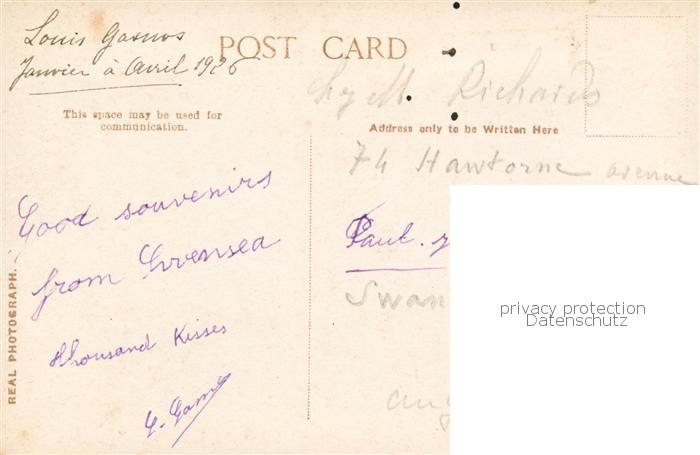 Louis Gasnos
Janvier à Avril 1926
POST CARD
This space may be used for
communication.
Address only to be Written Here
Richards
74 Hawtorne avenue
Good souvenirs
from
thousand Kisses
Paul.
Swan
REAL PHOTOGRAPH.
privacy protection
Datenschutz